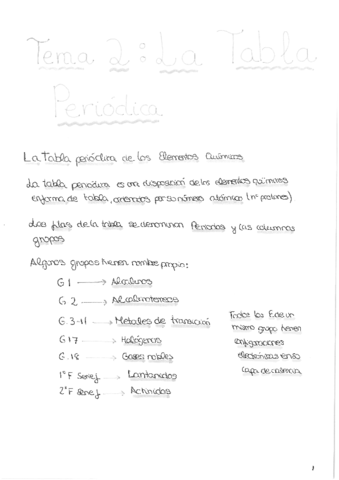 Tema 2: La Tabla
Periódica
La Tabla periódica de los Elementos Químicos
La tabla periodica es una disposición de los elementos químicos
en forma de tabla, ordenados por su número atómico (nº protones)
Las filas de la tabla se denominan Periodos y las columnas
grupos
Algunos grupos tienen nombre propio:
G1 → Alcalinos
G 2 → Alcalinoterreos
G.3-11 → Metales de transición
G17 → Halógenos
G.18 → Gases nobles
1ª F Serie f → Lantanidos
2ª F Serie f → Actinidos
Todos los E de un
mismo grupo tienen
configuraciones
electrónicas en su
capa de
1